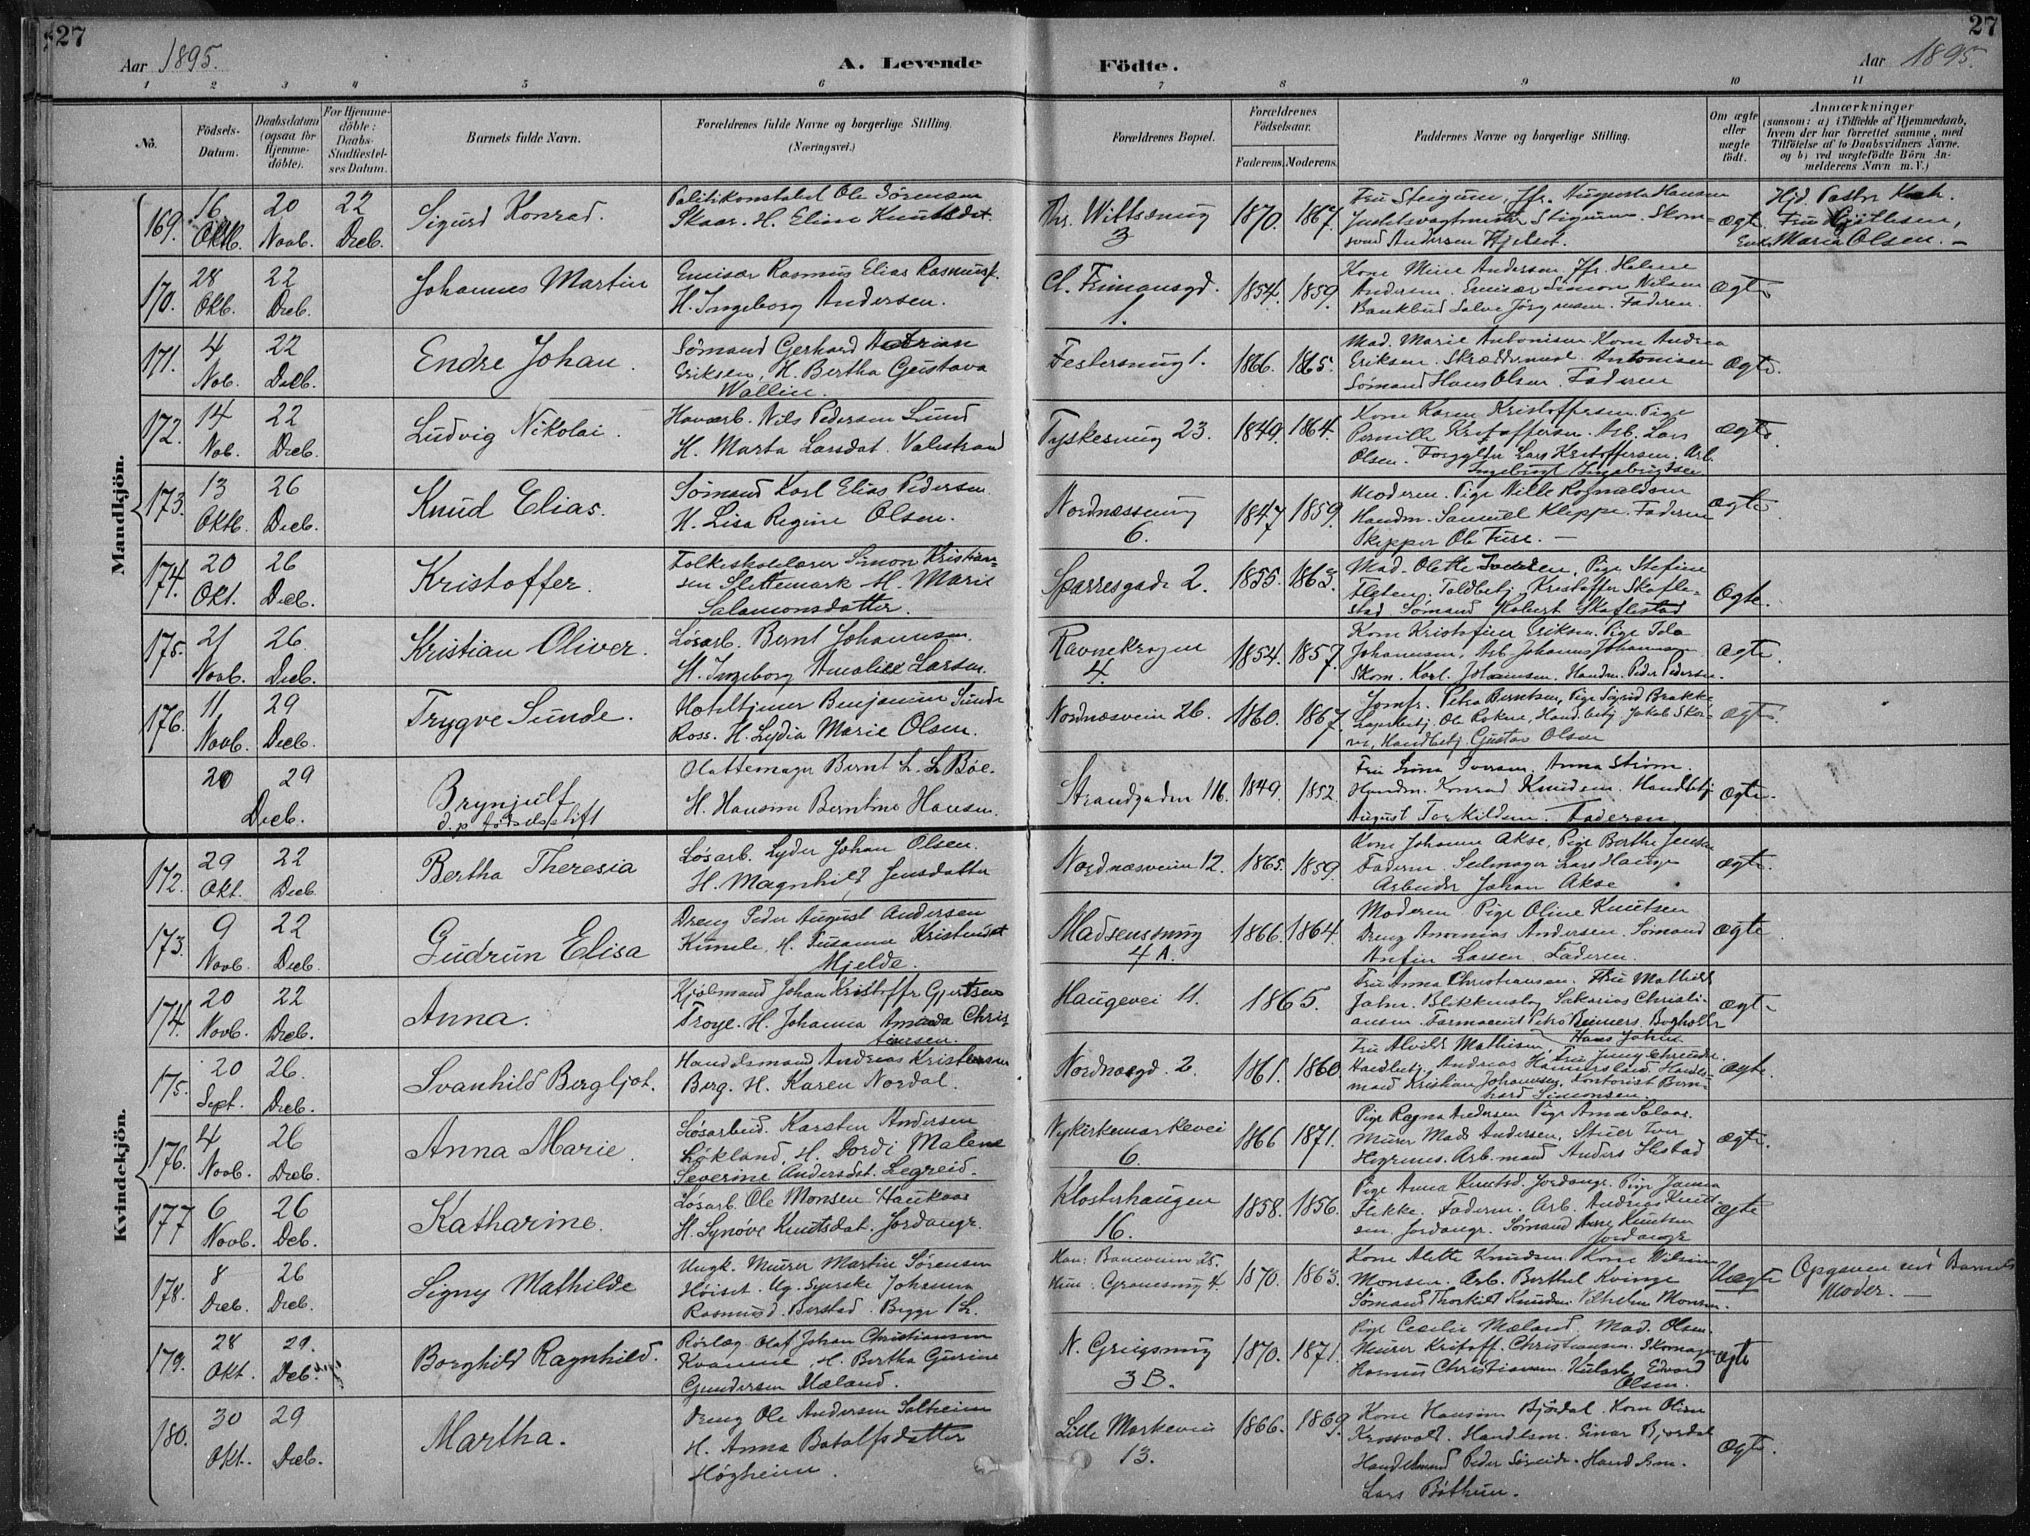 27
27
Aar 1895.
A. Levende
Födte.
Aar 1895.
1 2 3 4 5 6 7 8 9 10 11
No.
Födsels-
Datum.
Daabsdatum
(ogsaa for
Hjemme-
döbte).
For Hjemme-
döbte:
Daabs-
Stadfæstel-
ses Datum.
Barnets fulde Navn.
Forældrenes fulde Navne og borgerlige Stilling.
(Næringsvei.)
Forældrenes Bopæl.
Forældrenes
Födselsaar.
Faderens. Moderens.
Faddernes Navne og borgerlige Stilling.
Om ægte
eller
uægte
födt.
Anmærkninger
(saasom: a) i Tilfælde af Hjemmedaab,
hvem der har forrettet samme, med
Tilföielse af to Daabsvidners Navne,
og b) ved uægtefödte Börn An-
melderens Navn m. V.)
Mandkjön.
169. 16 Oktb. 20 Novb. 22 Decb.
Sigurd Konrad.
Politikonstabel Ole Sörensen
Skaar. H. Elina Knutsdat.
Chr. Wittssmug
3
1870. 1867.
ægte
Maria Olsen.
170. 28 Oktb. 22 Decb.
Johannes Martin
Emisær Rasmus Elias Rasmuss.
H. Ingeborg Andersen.
Cl. Fimansgd.
1.
1854. 1859.
Kone Mine Andersen, Jfr. Helene
Andersen. Emisær Simon Nilsen
Bankbud Salve Jörgensen. Faderen.
ægte
171. 4 Nob. 22 Decb.
Endre Johan.
Sömand Gerhard Andrias
Eriksen, H. Bertha Gustava
Wallin.
Festersmug 1.
1866. 1865.
Mad. Marie Antonisen Kone Andrea
Eriksen. Skræddermest. Antonisen
Sömand Hans Olsen. Faderen
ægte.
172. 14 Nob. 22 Decb.
Ludvig Nikolai.
Havarb. Nils Pedersen Lund
H. Marta Larsdat. Valestrand
Tyskesmug 23.
1849. 1864.
Kone Karen Kristoffersen. Pige
Pernille Kristoffersen. Arb. Lars
Olsen. Forgylder Lars Kristoffersen. Arb.
Ingebrigt Ingebrigtsen
ægte
173. 13 Oktb. 26 Decb.
Knud Elias.
Sömand Karl Elias Pedersen
H. Lisa Regine Olsen.
Nordnæssmug
6.
1847 1859.
Moderen. Pige Nille Rognaldsen
Handm. Samuel Kleppe. Faderen
Skipper Ole Fuse.
ægte
174. 20 Okt. 26 Decb.
Kristoffer.
Folkeskolelærer Simon Kristian-
sen Slettemark H. Marie
Salamonsdatter.
Sparresgade 2.
1855. 1863.
Mad. Olette Pige Stefine
Toldbetj. Kristoffer Skafle-
stad Sömand Robert Skaflestad
ægte.
175. 21 Novb. 26 Decb.
Kristian Oliver.
Lösarb. Bernt Johannesen.
H. Ingeborg Amalie Larsen.
Ravnekrogen
4.
1854. 1857.
Kone Kristofine Eriksen. Pige Ida
Johannesen, Arb. Johannes Johannesen
Skom. Karl Johansen. Handm. Peder Pedersen.
ægte.
176. 11. Novb. 29 Decb.
Trygve Sunde.
Hoteltjener Benjamin Sunde
Ross. H. Lydia Marie Olsen.
Nordnæsveien 26.
1860. 1867.
Jomfr. Petra Berntsen, Pige Sigrid Brække,
Lagerbetj. Ole Rokne, Handbetj. Jakob Skor-
ve, Handbetj. Gustav Olsen
ægte.
20 29
Decb.
Brynjulf
d.p. fødselsstift
Hattemager Bernt L. L. Böe.
H. Hansine Berntine Hansen.
Strandgaden 116.
1849. 1852.
Fru Lina Iversen. Anna Ström.
Handm. Konrad Knudsen. Handbetj
August Torkildsen. Faderen
ægte.
Kvindekjön.
172. 29 Okt. 22 Decb.
Bertha Theresia
Lösarb. Lyder Johan Olsen.
H. Magnhild Jensdatter
Nordnæsveien 12.
1865. 1859.
Kone Johanne Akse, Pige Berthe Jensen
Faderen. Seilmager Lars Hauge
Arbeider Johan Akse
ægte.
173. 9 Novb. 22 Decb.
Gudrun Elisa
Dreng Peder August Andersen
H. Susanna Kristensdat
Mjelde.
Madsenssmug
4 A.
1866. 1864.
Moderen Pige Oline Knutsen
Dreng Ananias Andersen. Sömand
Anfin Larsen. Faderen.
ægte
174. 20 Novb. 22 Decb.
Anna.
Kjölmand Johan Kristoffr Gjertsen
Troye. H. Johanna Amanda Chris
tiansen.
Haugevei 11.
1865.
Fru Anna Christiansen. Fru Mathilde
Jahn. Blikkenslag. Sakarias Christi-
ansen. Farmaceut Petro Reimers. Bogholder
Hans Jahn
ægte
175. 20 Sept. 26. Decb.
Svanhild Bergljot.
Handelsmand Andreas Kristensen
Berg. H. Karen Nordal.
Nordnæsgd. 2.
1861. 1860.
Fru Alvilde Mathisen
Handbetj. Andreas Hammersland. Handels-
mand Kristian Johannesen, Kontorist Bern-
hard Simonsen.
ægte.
176. 4 Novb. 26 Decb.
Anna Marie.
Lösarbeid. Karsten Andersen
Lökland, H. Dordi Malene
Severine Andersdat. Legreid.
Nykirkemarkevei
6.
1866 1871.
Pige Ragna Andersen Pige Anna
Murer Mads Andersen, Stuer Iver
Hegrenes. Arb.mand Anders Ilstad
ægte.
177 6 Novb. 26 Deb.
Katharine.
Lösarb. Ole Monsen Haukaas
H. Synöve Knutsdat. Jordanger.
Klosterhaugen
16.
1858. 1856.
Pige Anna Knutsd. Jordangr. Pige Janna
Flikke. Faderen. Arb. Andreas Knut-
sen Jordangr. Sömand Arne Knutsen
Jordangr
ægte
178. 8 Decb. 26 Decb.
Signy Mathilde
Ungk. Murer Martin Sörensen
Höiset. Ug. Syerske Johanna
Rasmusd. Berstad. Begge 1 L.
Han: Baneveien 25.
1870. 1863.
Kone Alette Knudsen. Kone Vilhelmine
Monsen. Arb. Berthel Kvinge
Sömand Thorkild Knudsen Vilhelm Monsen.
Uægte
Opgiven ved Barnets
Moder.
179. 28 Okt. 29. Deb.
Borghild Ragnhild.
Rörlæg. Olaf Johan Christiansen
Kvamme, H. Bertha Gurine
Gundersen Mæland.
N. Griegsmug
3 B.
1870. 1871.
Pige Cecilie Mæland. Mad. Olsen.
Murer Kristoff. Christiansen. Skomager
Rasmus Christiansen. Kularb. Edvard
Olsen.
ægte
180. 30 Okt. 29 Decb.
Martha.
Dreng Ole Andersen Solheim
H. Anna Botolfsdatter
Högheim.
Lille Markevei
13.
1866. 1869.
Kone Hansine Bjordal. Kone Oline
Krossvold. Handlsm. Einar Bjordal
Handelsmand Peder Söreide. Handlsm.
Lars Böthun.
ægte.